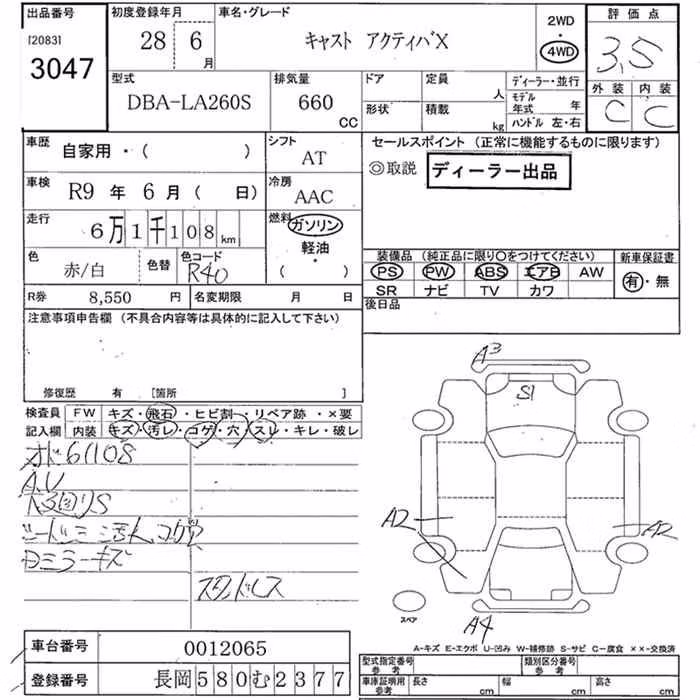 出品番号
[2083]
3047
初度登録年月
28 6月
車名・グレード
キャスト アクティバX
2WD
・
4WD
評価点
3.5
外装 内装
C C
型式
DBA-LA260S
排気量
660 CC
ドア
形状
定員 人
積載 kg
ディーラー・並行
モデル年式 年
ハンドル 左・右
車歴 自家用・( )
シフト AT
車検 R9 年 6 月 ( 日)
冷房 AAC
走行 6万1千108 km
燃料 ガソリン
・
軽油
・
( )
色 赤/白
色替
色コード R40
R券 8,550 円
名変期限 月 日
セールスポイント (正常に機能するものに限ります)
◎取説 ディーラー出品
装備品 (純正品に限り○をつけてください)
新車保証書
PS PW ABS エアB AW
有・無
SR ナビ TV カワ
後日品
注意事項申告欄 (不具合内容等は具体的に記入して下さい)
修復歴 有 [箇所 ]
検査員記入欄
FW キズ・飛石・ヒビ割・リペア跡・×要
内装 キズ・汚レ・コゲ・穴・スレ・キレ・破レ
オド61108
A.U
ミラーキズ
A3
S1
A2
A2
A4
スペア
A-キズ E-エクボ U-凹み W-補修跡 S-サビ C-腐食 ××-交換済
車台番号 0012065
登録番号 長岡580む2377
型式指定番号 参考
類別区分番号 参考
車庫証明用 参考
長さ cm
幅 cm
高さ cm